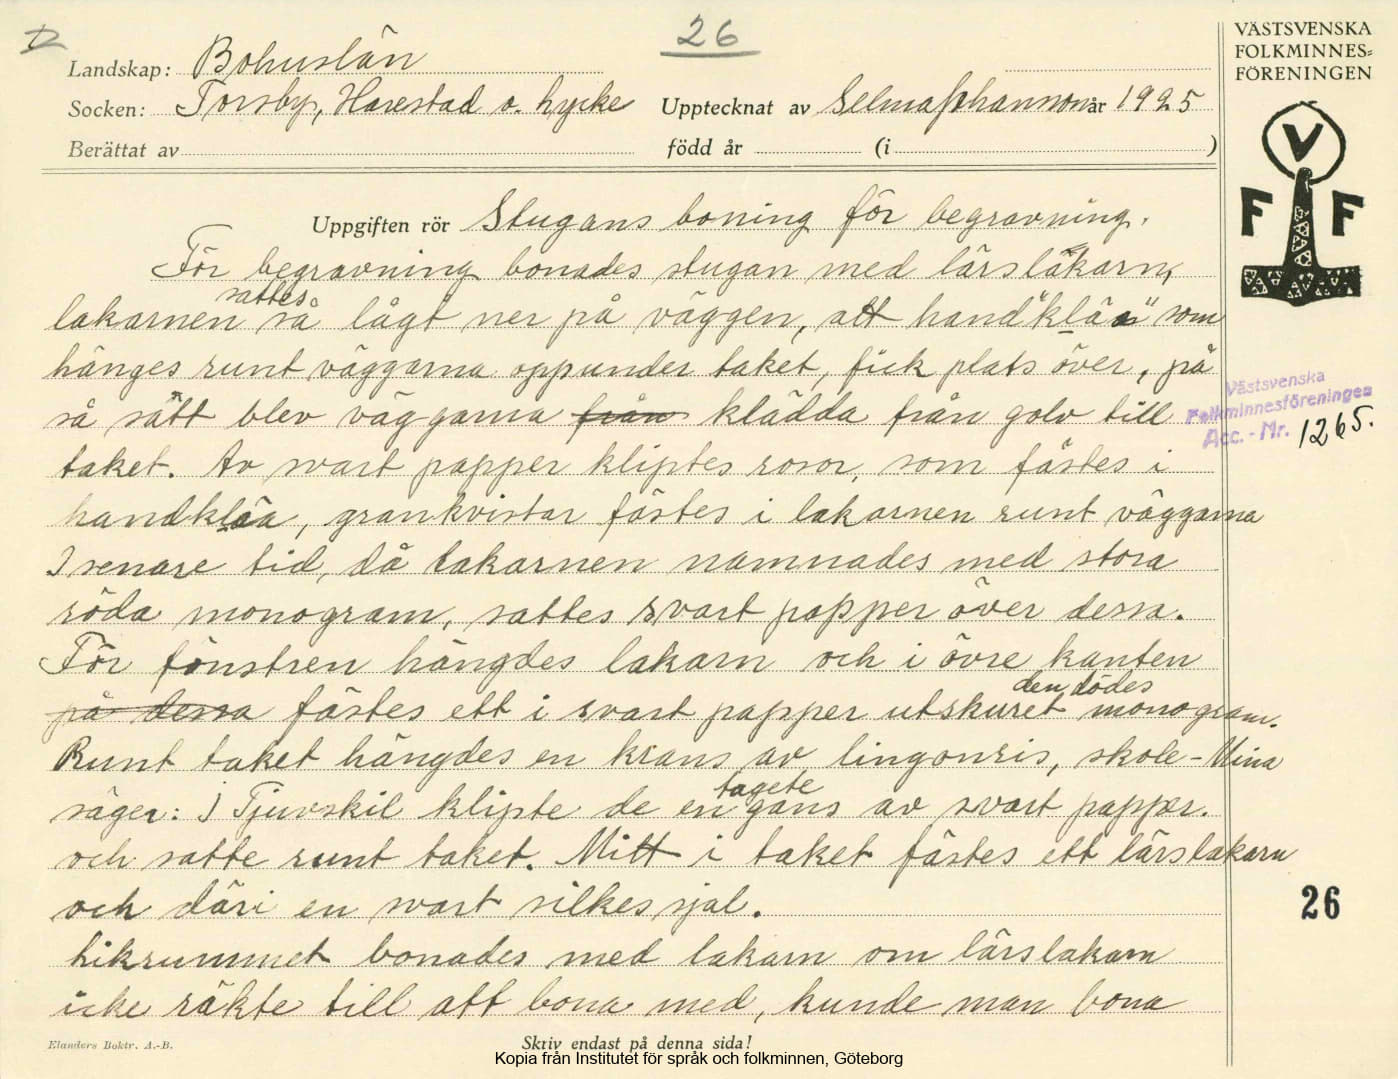 26
VÄSTSVENSKA
FOLKMINNES=
FÖRENINGEN
Landskap: Bohuslän
Socken: Torsby, Harestad o. Lycke Upptecknat av Selma Johansson år 1925
Berättat av född år (i )
V
F F
Uppgiften rör Stugans boning för begravning.
För begravning bonades stugan med lärslakarn,
sattes
lakarnen så lågt ner på väggen, att hand"kläa" som
hänges runt väggarna oppunder taket, fick plats över, på
så sätt blev väggarna från klädda från golv till
taket. Av svart papper kliptes rosor, som fästes i
handkläa, grankvistar fästes i lakarnen runt väggarna
I senare tid, då lakarnen namnades med stora
röda monogram, sattes svart papper över dessa.
För fönstren hängdes lakarn och i övre kanten
den dödes
på dessa fästes ett i svart papper utskuret monogram.
Runt taket hängdes en krans av lingonris, skole-Mina
tagete
säger: I Tjuvskil klipte de en gans av svart papper.
och satte runt taket. Mitt i taket fästes ett lärslakarn
och däri en svart silkessjal.
Likrummet bonades med lakarn om lärslakarn
icke räkte till att bona med, kunde man bona
Västsvenska
Folkminnesföreningen
Acc. - Nr. 1265.
26
Elanders Boktr. A.-B.
Skriv endast på denna sida!
Kopia från Institutet för språk och folkminnen, Göteborg